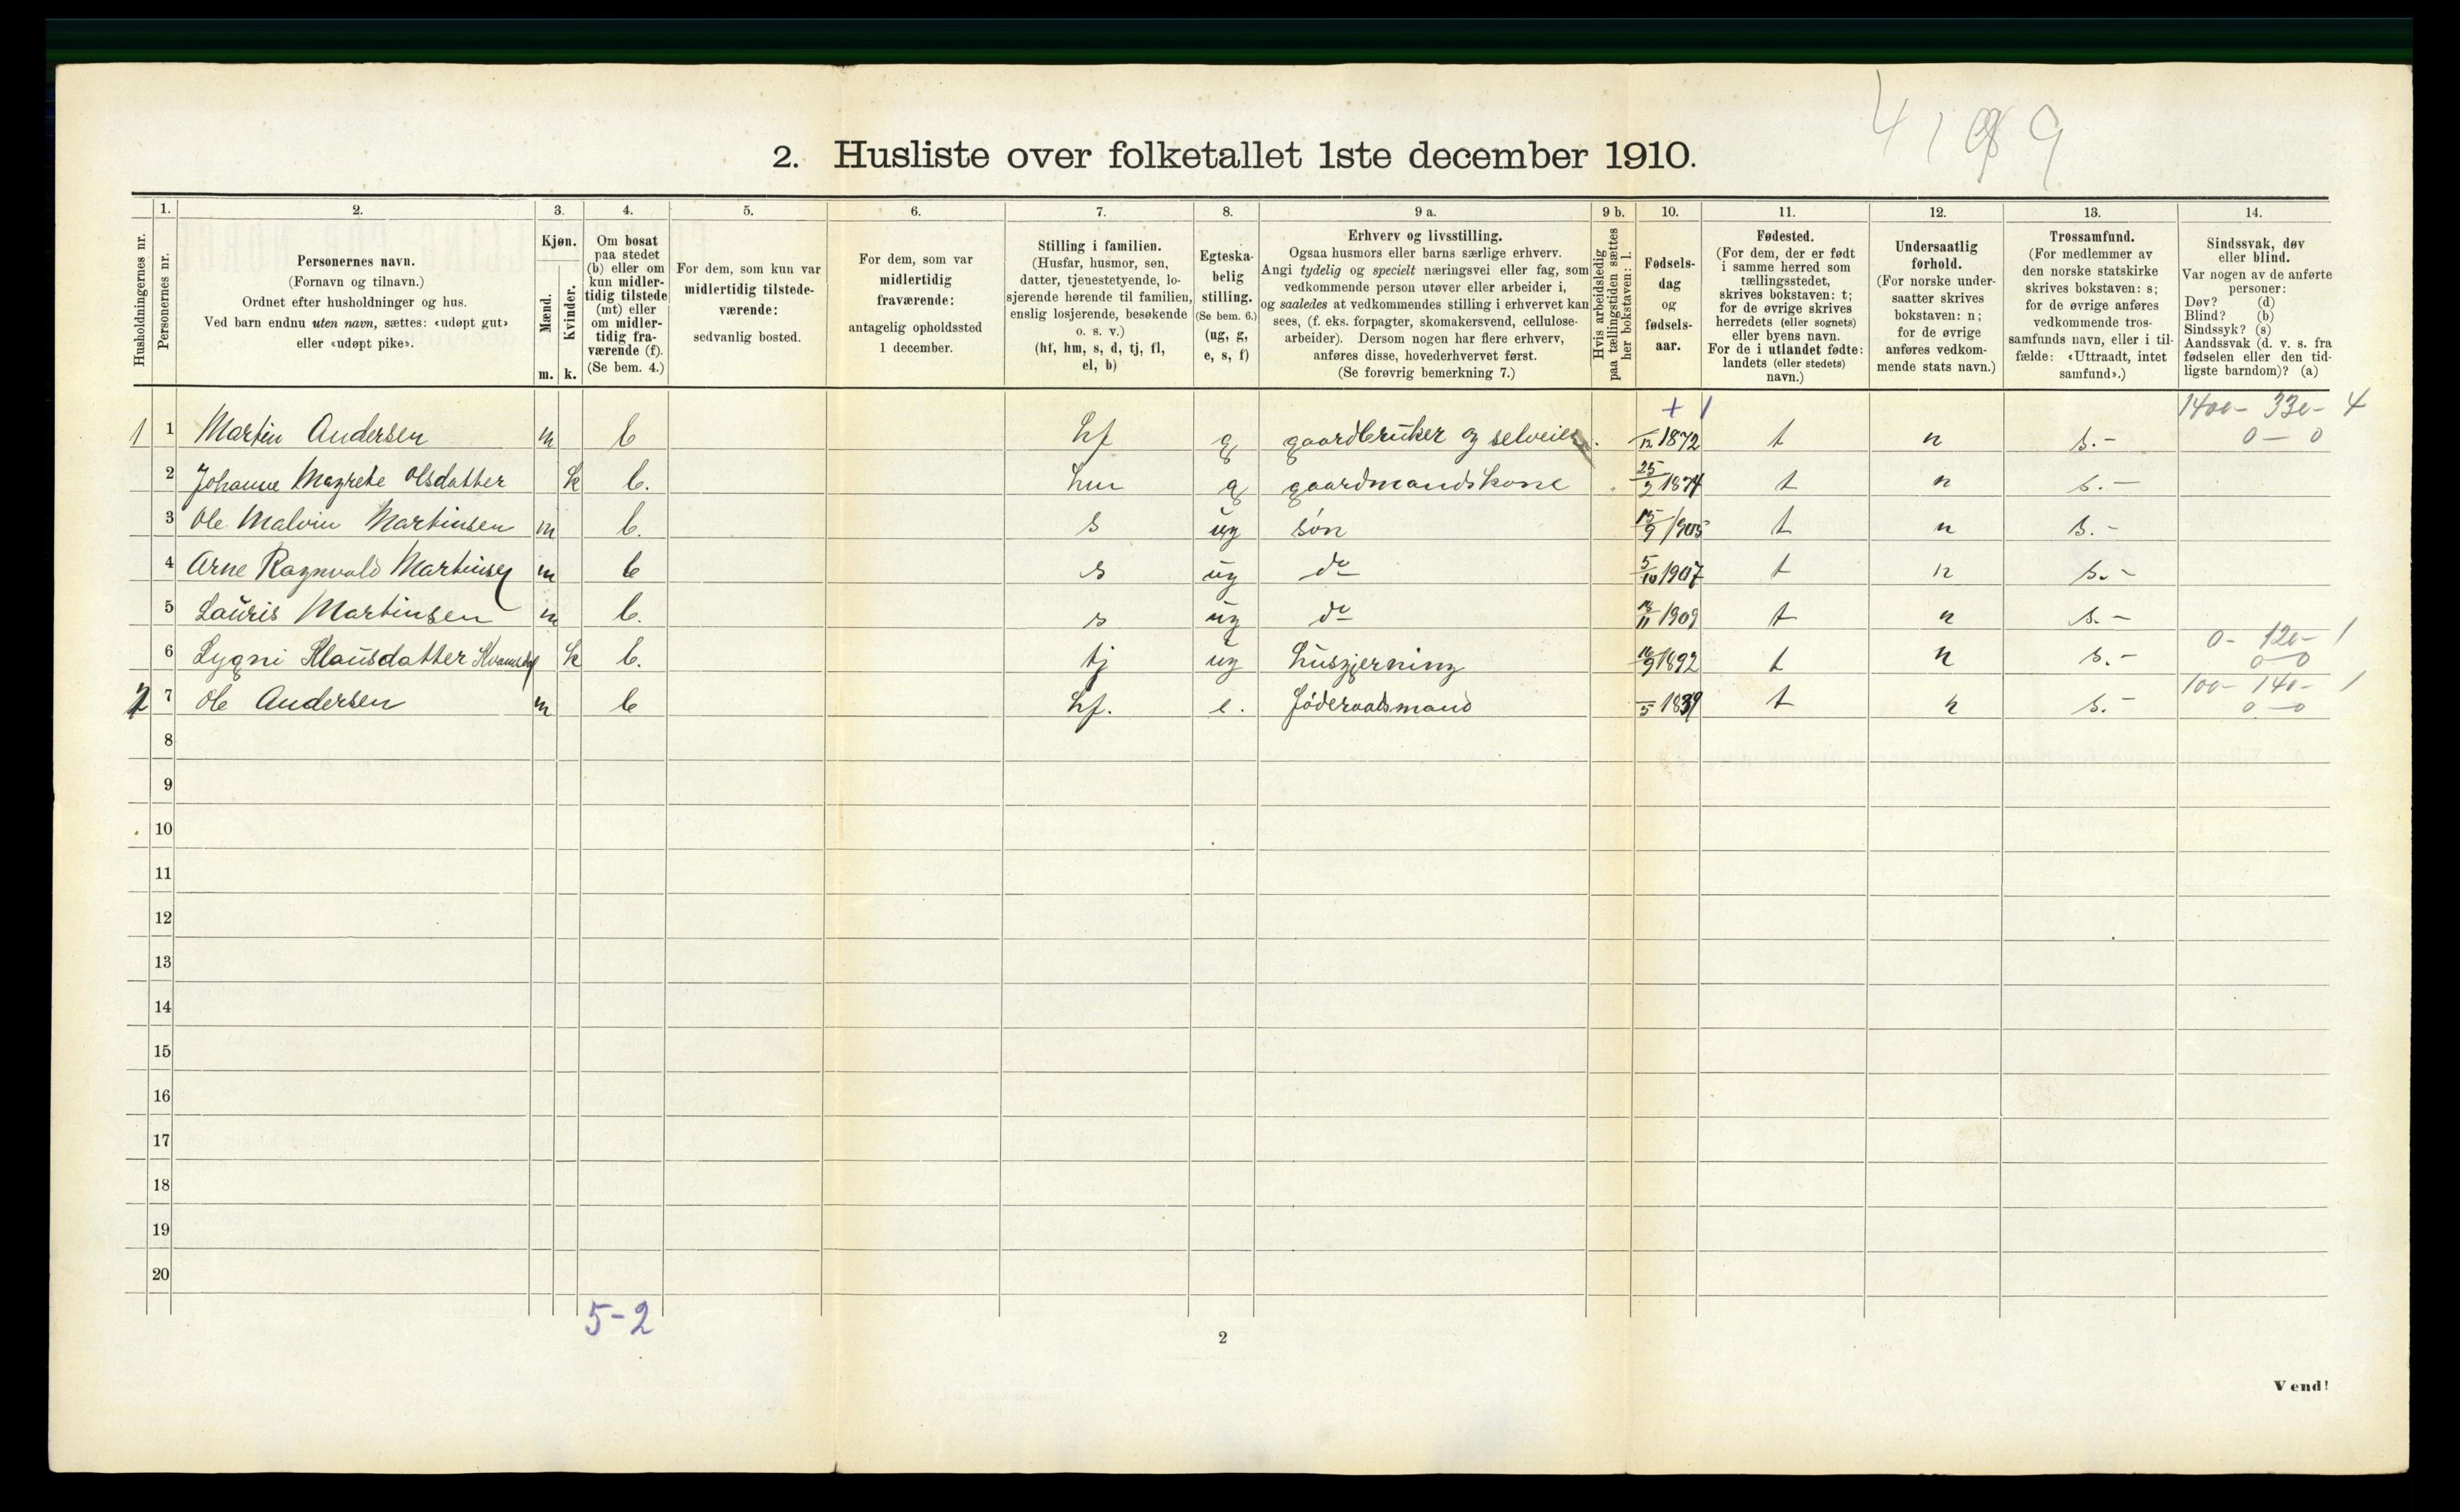 4189
2. Husliste over folketallet 1ste december 1910.
1. 2. 3. 4. 5. 6. 7. 8. 9 a. 9 b. 10. 11. 12. 13. 14.
Husholdningernes nr.
Personernes nr.
Personernes navn.
(Fornavn og tilnavn.)
Ordnet efter husholdninger og hus.
Ved barn endnu uten navn, sættes: «udøpt gut»
eller «udøpt pike».
Kjøn.
Mænd.
Kvinder.
m. k.
Om bosat
paa stedet
(b) eller om
kun midler-
tidig tilstede
(mt) eller
om midler-
tidig fra-
værende (f).
(Se bem. 4.)
For dem, som kun var
midlertidig tilstede-
værende:
sedvanlig bosted.
For dem, som var
midlertidig
fraværende:
antagelig opholdssted
1 december.
Stilling i familien.
(Husfar, husmor, søn,
datter, tjenestetyende, lo-
sjerende hørende til familien,
enslig losjerende, besøkende
o. s. v.)
(hf, hm, s, d, tj, fl,
el, b)
Egteska-
belig
stilling.
(Se bem. 6.)
(ug, g,
e, s, f)
Erhverv og livsstilling.
Ogsaa husmors eller barns særlige erhverv.
Angi tydelig og specielt næringsvei eller fag, som
vedkommende person utøver eller arbeider i,
og saaledes at vedkommendes stilling i erhvervet kan
sees, (f. eks. forpagter, skomakersvend, cellulose-
arbeider). Dersom nogen har flere erhverv,
anføres disse, hovederhvervet først.
(Se forøvrig bemerkning 7.)
Hvis arbeidsledig
paa tællingstiden sættes
her bokstaven: l.
Fødsels-
dag
og
fødsels-
aar.
Fødested.
(For dem, der er født
i samme herred som
tællingsstedet,
skrives bokstaven: t;
for de øvrige skrives
herredets (eller sognets)
eller byens navn.
For de i utlandet fødte:
landets (eller stedets)
navn.)
Undersaatlig
forhold.
(For norske under-
saatter skrives
bokstaven: n;
for de øvrige
anføres vedkom-
mende stats navn.)
Trossamfund.
(For medlemmer av
den norske statskirke
skrives bokstaven: s;
for de øvrige anføres
vedkommende tros-
samfunds navn, eller i til-
fælde: «Uttraadt, intet
samfund».)
Sindssvak, døv
eller blind.
Var nogen av de anførte
personer:
Døv? (d)
Blind? (b)
Sindssyk? (s)
Aandssvak (d. v. s. fra
fødselen eller den tid-
ligste barndom)? (a)
+ 1 1400- 330- 4
1 1 Martin Andersen m b hf g gaardbruker og selveier. /12 1872 t n s.- 0-0
2 Johanne Magrete Olsdatter k b. hm g gaardmandskone 25/2 1874 t n s.-
3 Ole Malvin Martinsen m b. s ug søn 15/9 1905 t n s.-
4 Arne Ragnvald Martinsen m b s ug do 5/10 1907 t n s.-
5 Lauris Martinsen m b. s ug do 18/11 1909 t n s.-
0- 120- 1
6 Lygni Klausdatter k b. tj ug husgjerning /9 1892 t n s.- 0-0
100- 140- 1
2 7 Ole Andersen m b hf. e. föderaadsmand /5 1839 t n s.- 0-0
8
9
10
11
12
13
14
15
16
17
18
19
20
5-2
2
Vend!